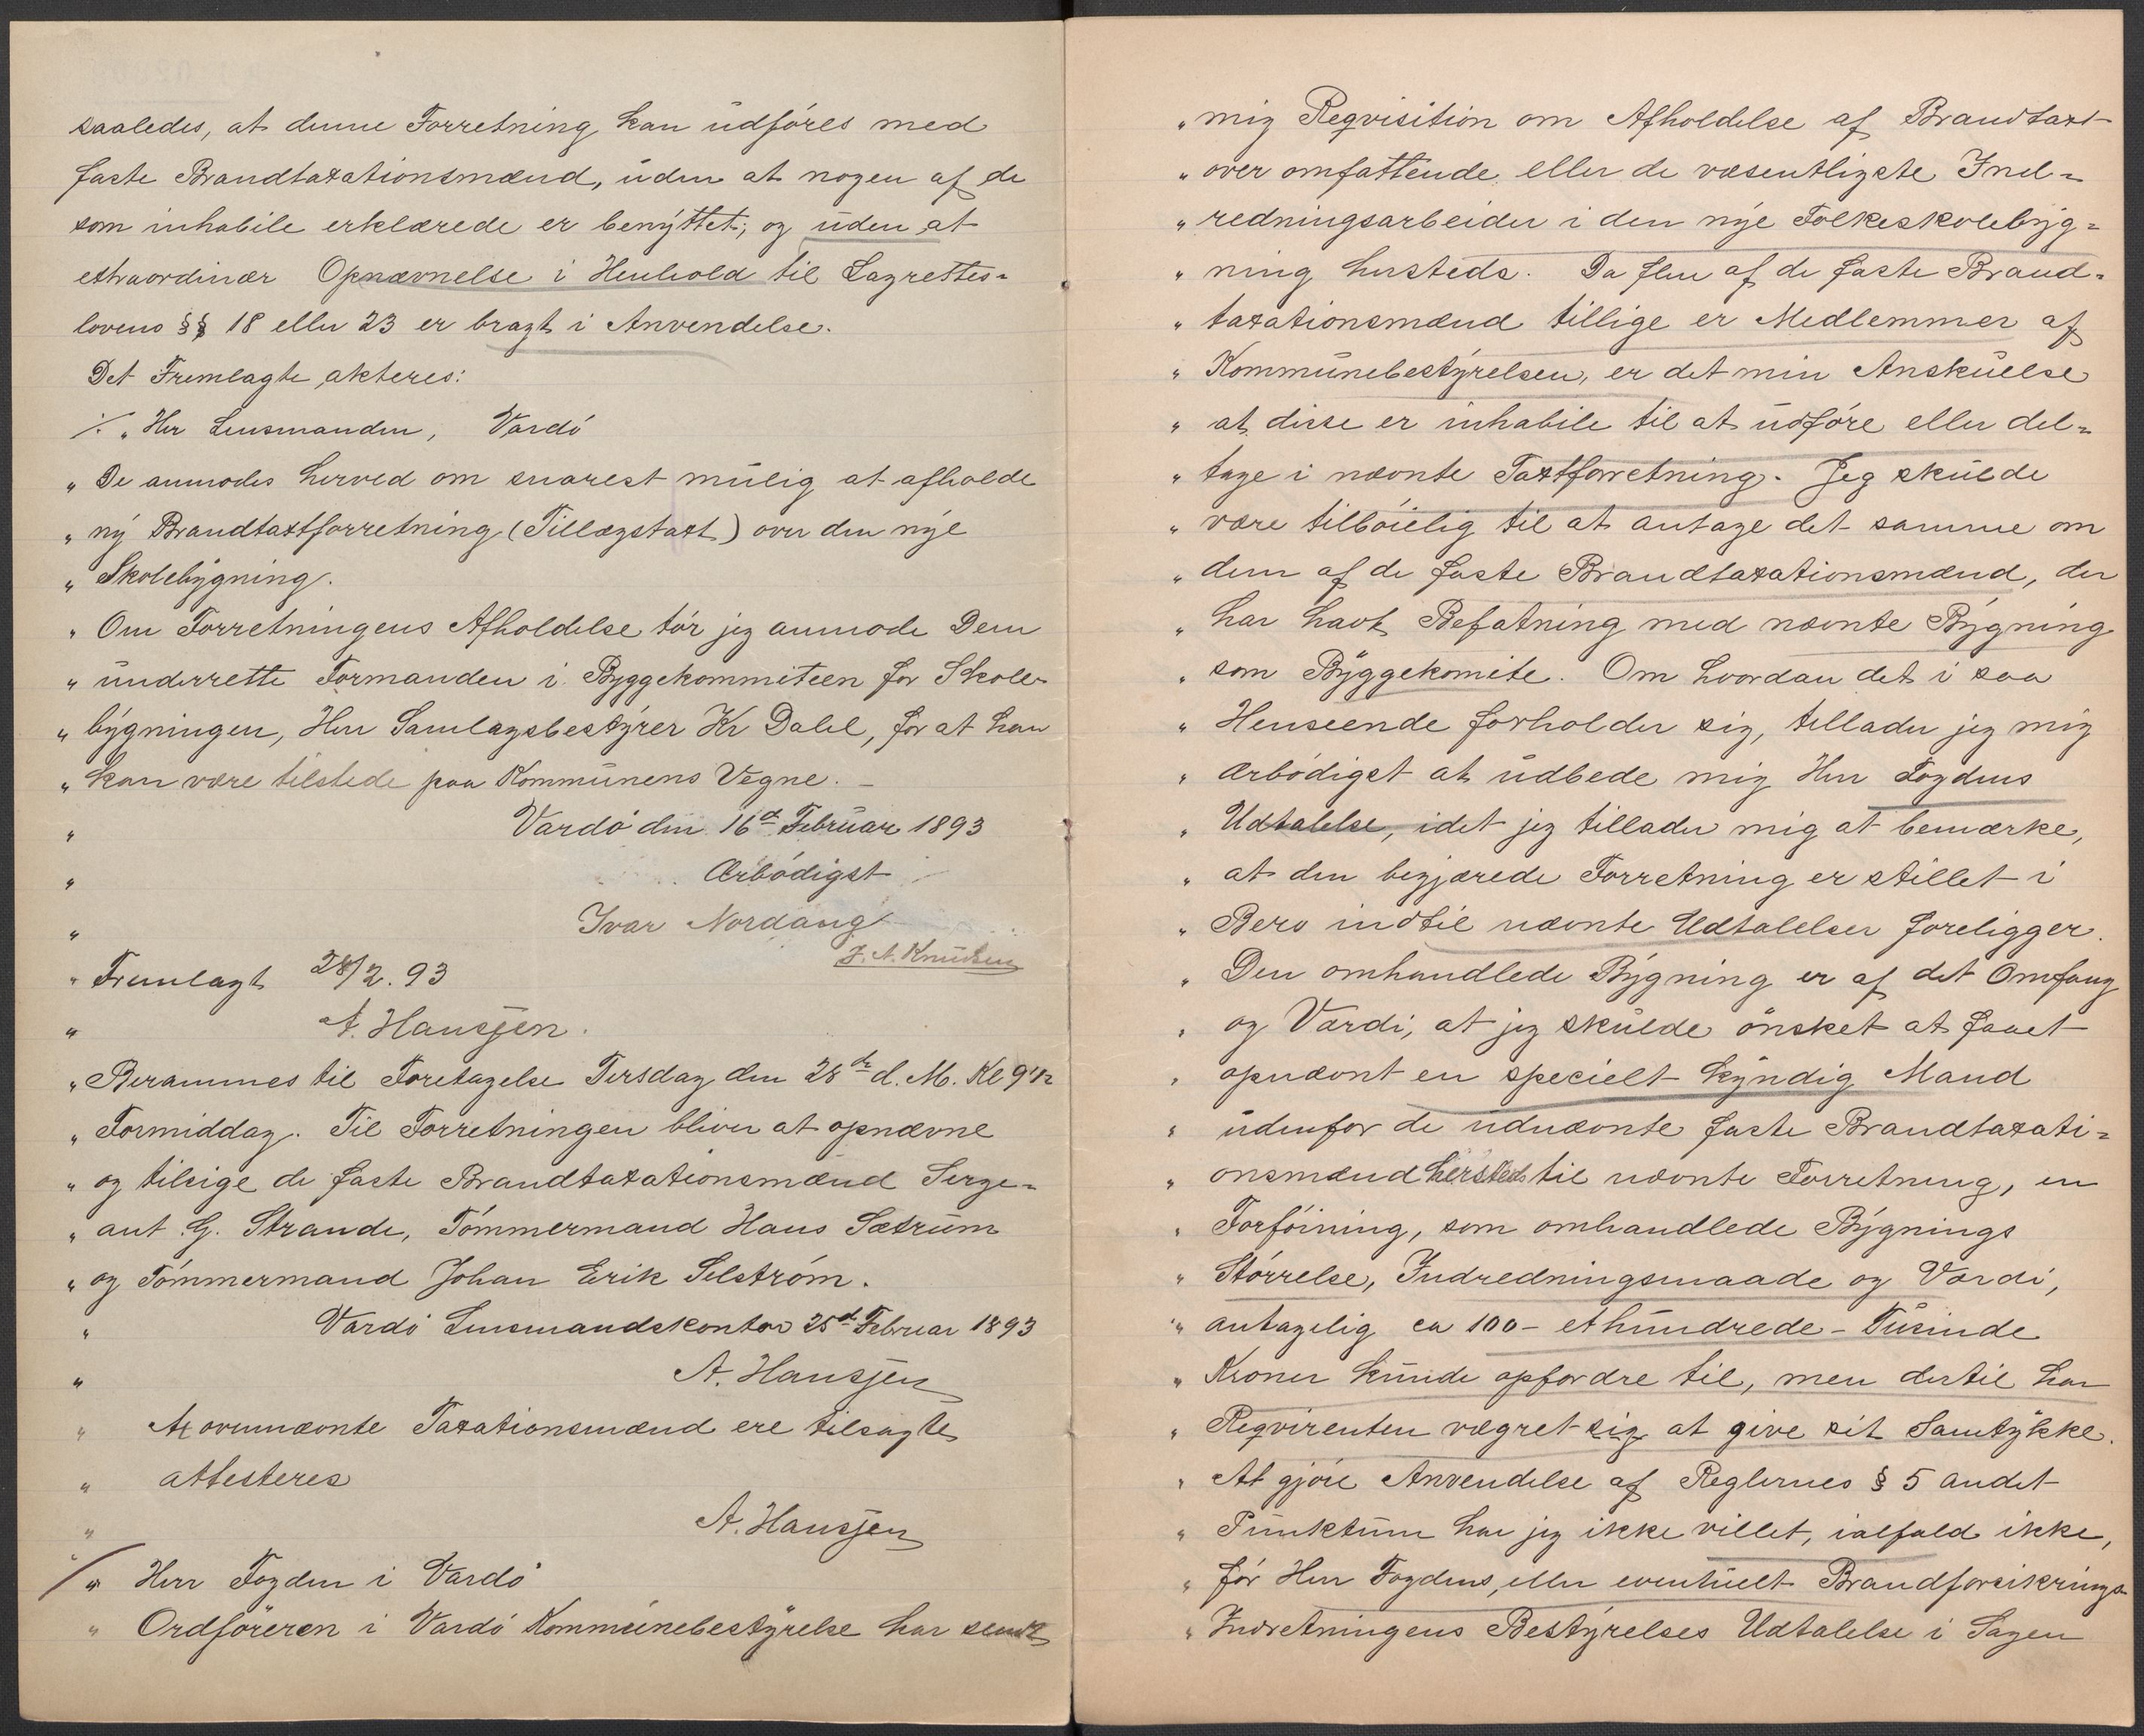 saaledes, at denne Forretning kan udføres med
faste Brandtaxationsmænd, uden at nogen af de
som inhabile erklærede er benyttet; og uden at
extraordinær Opnævnelse i Henhold til Lagrettes=
lovens §§ 18 eller 23 er bragt i Anvendelse.
Det Fremlagte akteres:
⁒ „ Herr Lensmanden, Vardö
„ De anmodes herved om snarest mulig at afholde
„ ny Brandtaxtforretning (Tillægstaxt) over den nye
„ Skolebygning.
„ Om Forretningens Afholdelse tør jeg anmode Dem
„ underrette Formanden i Byggekommiteen for Skole-
„ bygningen, Herr Samlagsbestyrer Kr Dahl, for at han
„ kan være tilstede paa Kommunens Vegne. –
„ Vardö den 16d Februar 1893
„ Ærbödigst
„ Ivar Nordang
J. A. Knudsen
„ Fremlagt 28/2. 93
„ A. Hansjen.
„ Berammes til Foretagelse Tirsdag den 28de d. M. Kl 9 1/2
„ Formiddag. Til Forretningen bliver at opnævne
„ og tilsige de faste Brandtaxationsmænd Serge=
„ ant G. Strande, Tömmermand Hans Sætrum
„ og Tömmermand Johan Erik Selström.
„ Vardö Lensmandskontor 25d Februar 1893
„ A. Hansjen
„ At ovennævnte Taxationsmænd ere tilsagte
„ attesteres
„ A. Hansjen
„ Herr Fogden i Vardö
„ Ordföreren i Vardö Kommunebestyrelse har sendt
„ mig Reqvisition om Afholdelse af Brandtaxt
„ over omfattende eller de væsentligste Ind=
„ redningsarbeider i den nye Folkeskolebyg=
„ ning hersteds. Da flere af de faste Brand=
„ taxationsmænd tillige er Medlemmer af
„ Kommunebestyrelsen, er det min Anskuelse
„ at disse er inhabile til at udföre eller del=
„ tage i nævnte Taxtforretning. Jeg skulde
„ være tilböielig til at antage det samme om
„ dem af de faste Brandtaxationsmænd, der
„ har havt Befatning med nævnte Bygning
„ som Byggekomite. Om hvordan det i saa
„ Henseende forholder sig, tillader jeg mig
„ ærbödigst at udbede mig Herr Fogdens
„ Udtalelse, idet jeg tillader mig at bemærke,
„ at den begjærede Forretning er stillet i
„ Bero indtil nævnte Udtalelser foreligger.
„ Den omhandlede Bygning er af det Omfang
„ og Værdi, at jeg skulde önsket at faaet
„ opnævnt en specielt kyndig Mand
„ udenfor de udnævnte faste Brandtaxati=
„ onsmænd hersteds til nævnte Forretning, en
„ Forföining, som omhandlede Bygnings
„ Störrelse, Indredningsmaade og Værdi,
„ antagelig ca 100 – ethundrede – Tusinde
„ Kroner kunde opfordre til, men dertil har
„ Reqvirenten vægret sig at give sit Samtykke.
„ At gjöre Anvendelse af Reglernes § 5 andet
„ Punktum har jeg ikke villet, ialfald ikke,
„ før Herr Fogdens, eller eventuelt Brandforsikrings
„ Indretningens Bestyrelses Udtalelse i Sagen